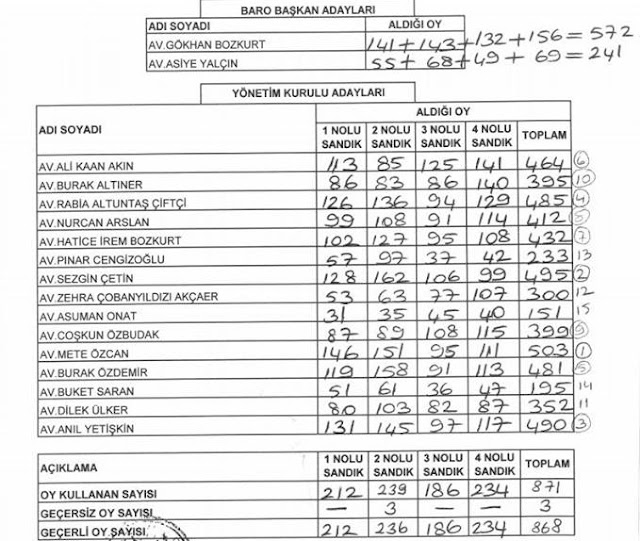 BARO BAŞKAN ADAYLARI
ADI SOYADI ALDIĞI OY
AV.GÖKHAN BOZKURT 141+143+132+156=572
AV.ASİYE YALÇIN 55+68+49+69=241
YÖNETİM KURULU ADAYLARI
ALDIĞI OY
ADI SOYADI 1 NOLU SANDIK 2 NOLU SANDIK 3 NOLU SANDIK 4 NOLU SANDIK TOPLAM
AV.ALİ KAAN AKIN 113 85 125 141 464 6
AV.BURAK ALTINER 86 83 86 140 395 10
AV.RABİA ALTUNTAŞ ÇİFTÇİ 126 136 94 129 485 4
AV.NURCAN ARSLAN 99 108 91 114 412
AV.HATİCE İREM BOZKURT 102 127 95 108 432 7
AV.PINAR CENGİZOĞLU 57 97 37 42 233 13
AV.SEZGİN ÇETİN 128 162 106 99 495 2
AV.ZEHRA ÇOBANYILDIZI AKÇAER 53 63 77 107 300 12
AV.ASUMAN ONAT 31 35 45 40 151 15
AV.COŞKUN ÖZBUDAK 87 89 108 115 399 9
AV.METE ÖZCAN 146 151 95 111 503 1
AV.BURAK ÖZDEMİR 119 158 91 113 481 5
AV.BUKET SARAN 51 61 36 47 195 14
AV.DİLEK ÜLKER 80 103 82 87 352 11
AV.ANIL YETİŞKİN 131 145 97 117 490 3
AÇIKLAMA 1 NOLU SANDIK 2 NOLU SANDIK 3 NOLU SANDIK 4 NOLU SANDIK TOPLAM
OY KULLANAN SAYISI 212 239 186 234 871
GEÇERSİZ OY SAYISI — 3 — — 3
GEÇERLİ OY SAYISI 212 236 186 234 868